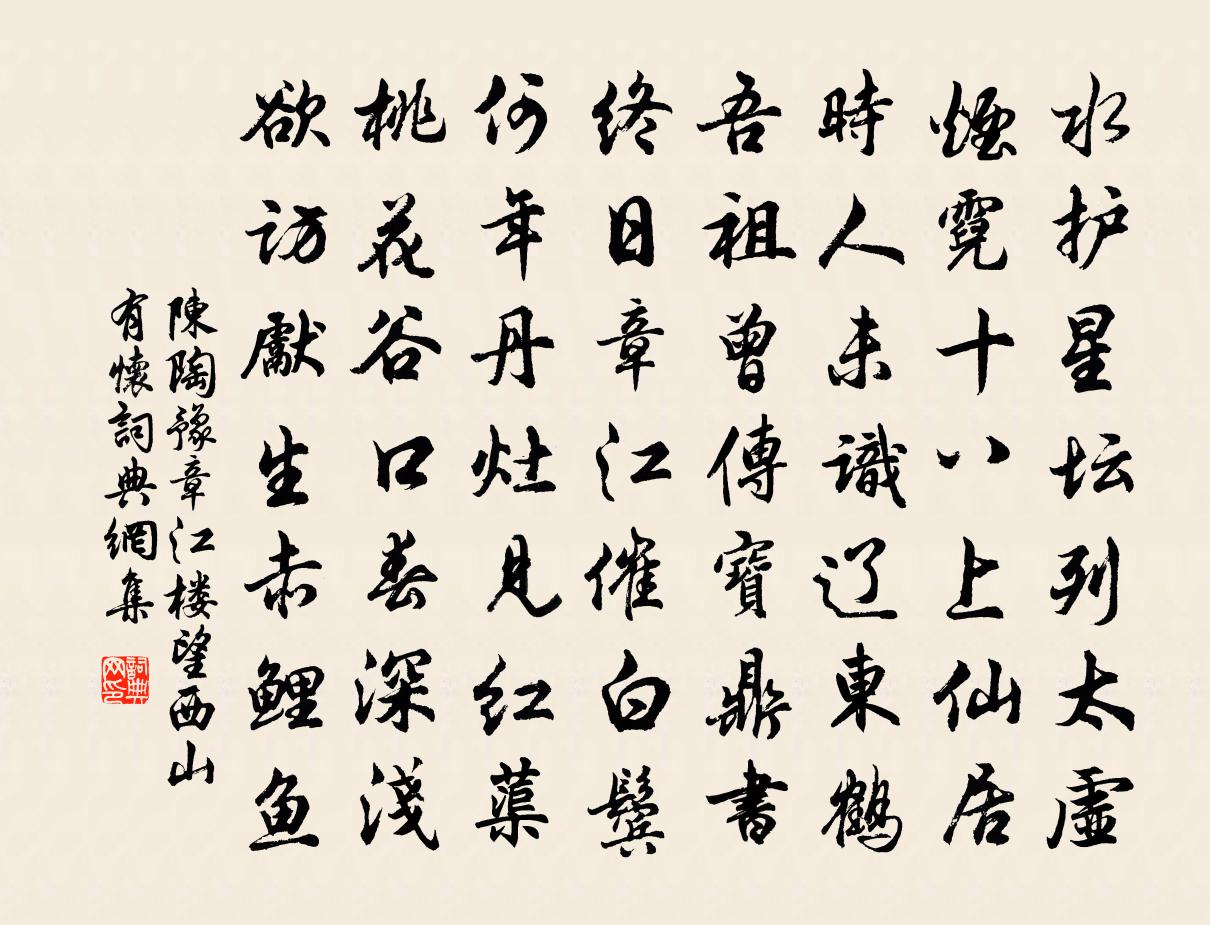 水护星坛列太虚
煙霓十八上仙居
時人未識辽東鶴
吾祖曾傳寶鼎書
终日章江催白鬓
何年丹灶见红蕖
桃花谷口春深淺
欲访獻生赤鲤鱼
陳陶豫章江楼望西山
有懷詞典網集
詞典网印